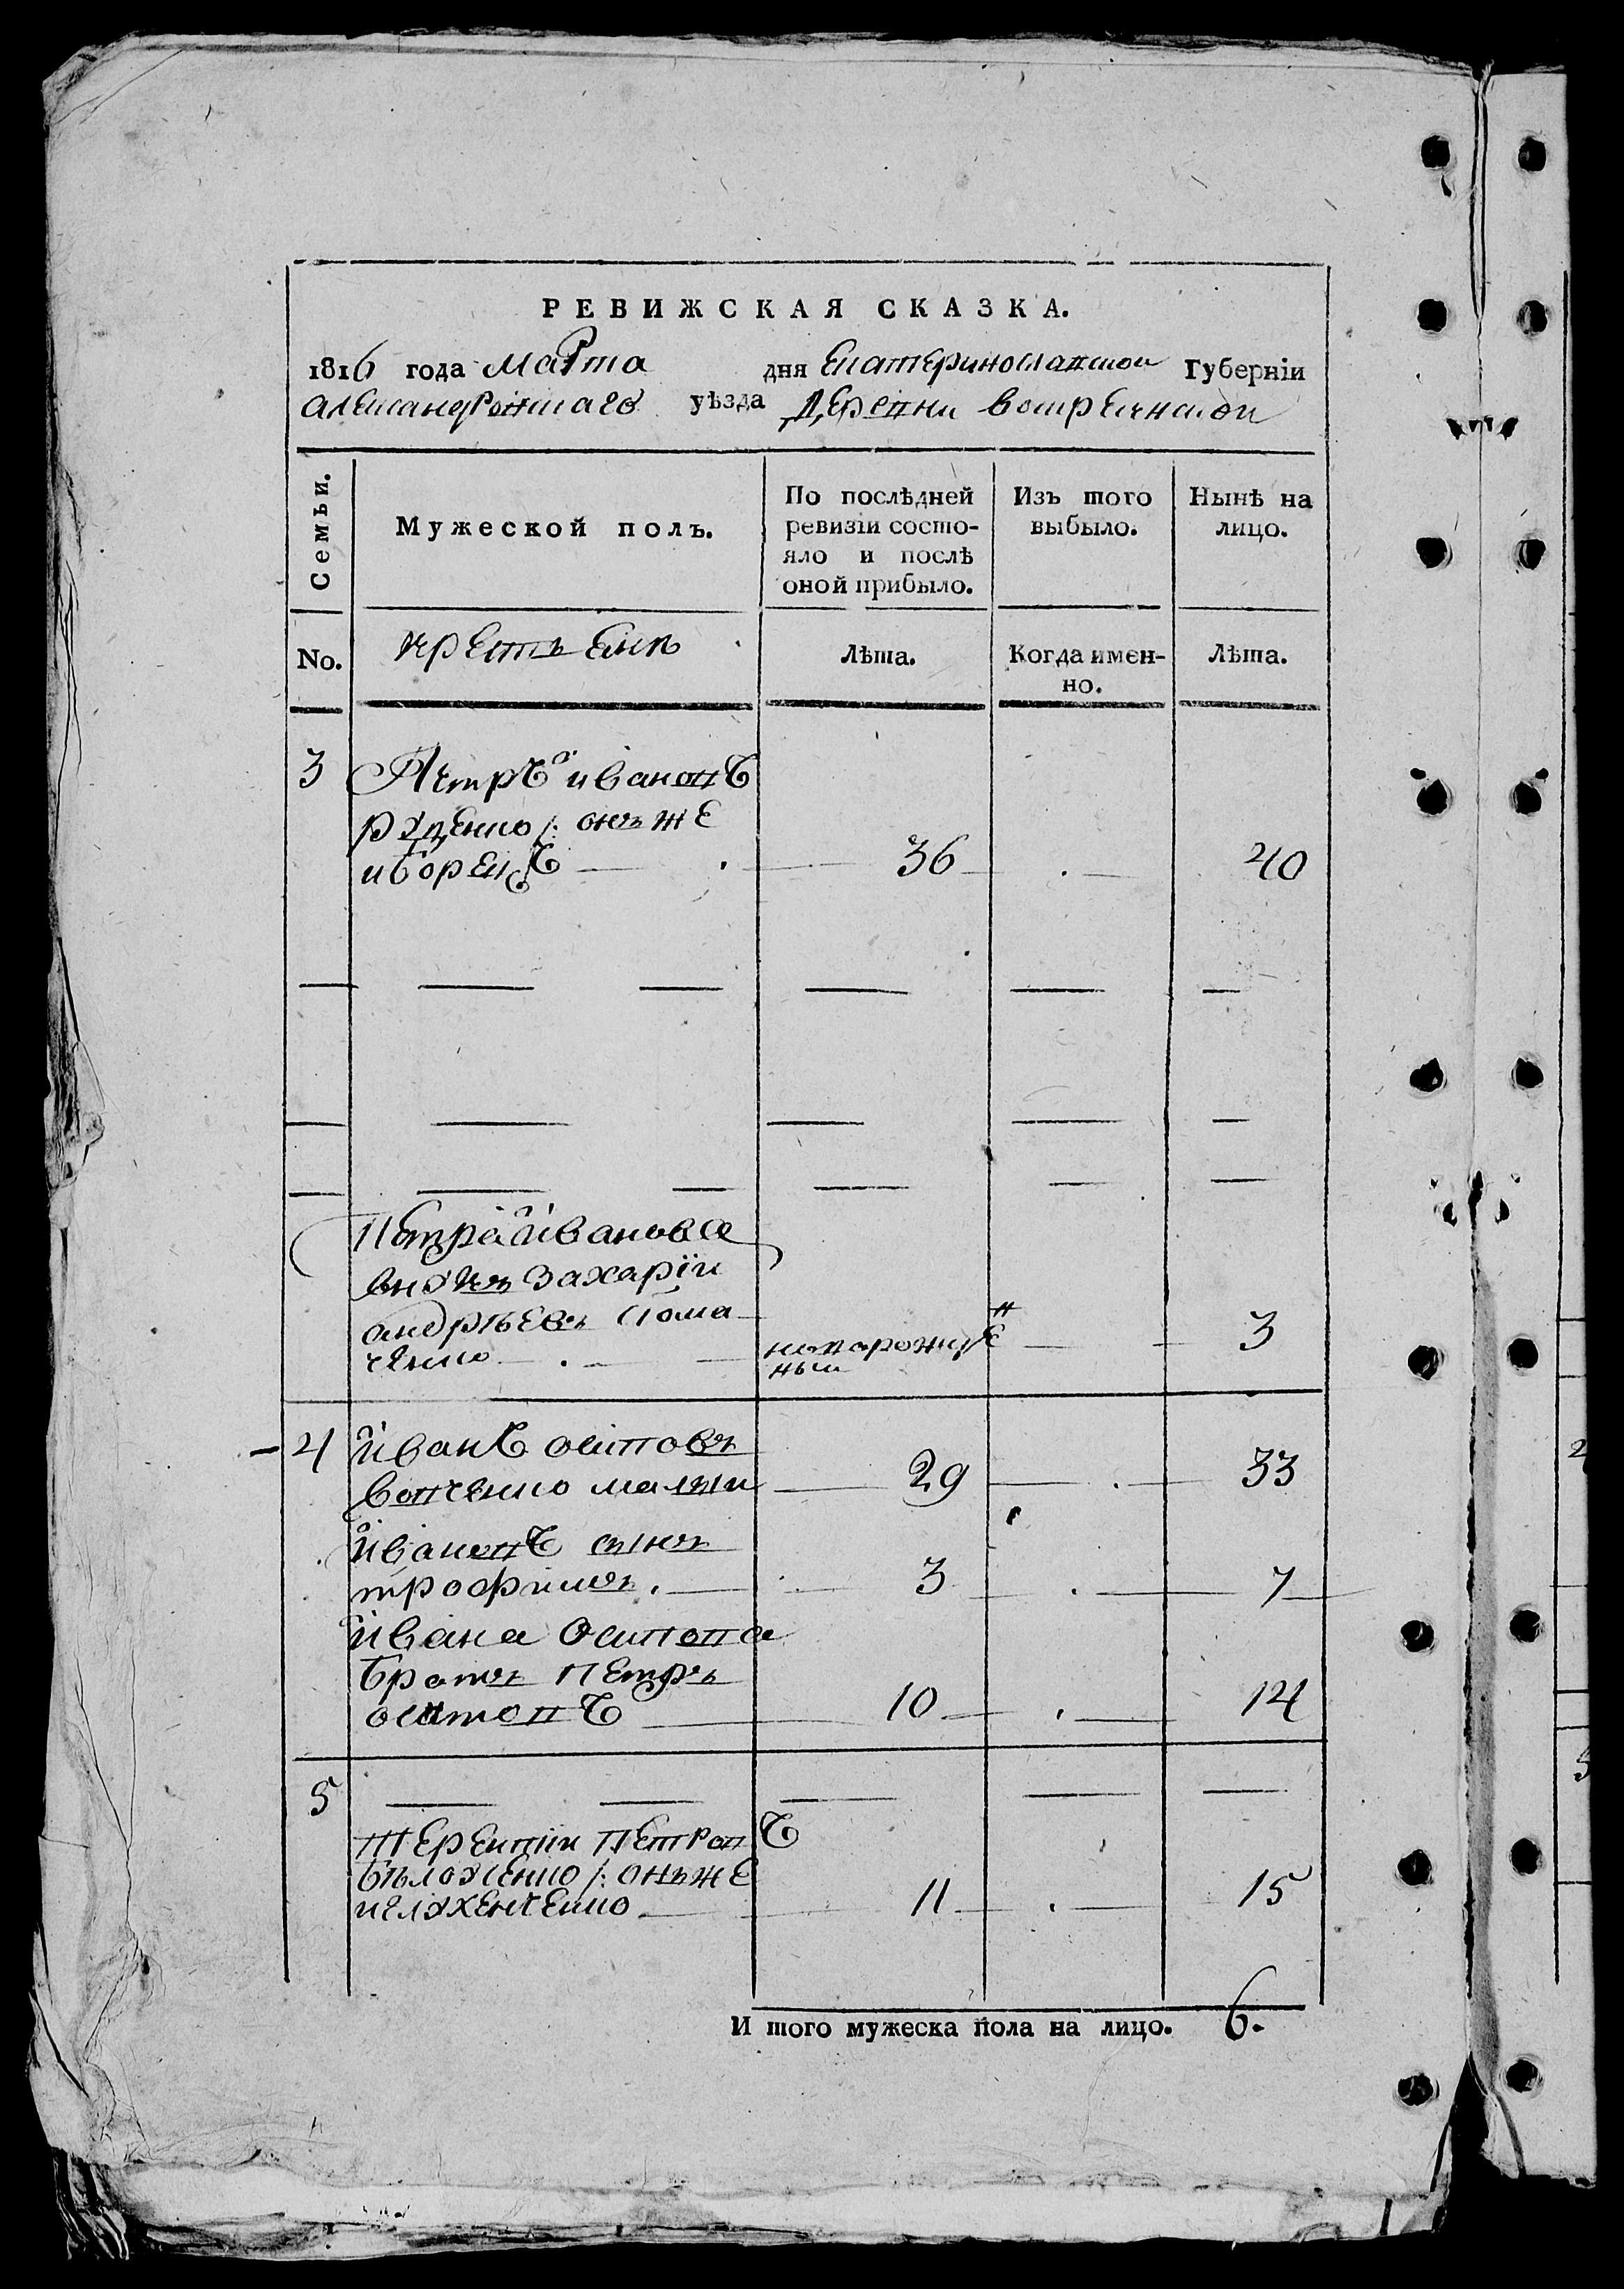 РЕВИЖСКАЯ СКАЗКА.
1816 года Марта дня Екатеринославской Губерніи
Александровскаго уѣзда Деревни Вотречнской
Семьи. Мужеской полъ. По послѣдней ревизіи состо-яло и послѣ оной прибыло. Изъ того выбыло. Нынѣ на лицо.
No. крестьянъ Лѣта. Когда имен-но. Лѣта.
3 Петръ ивановъ
руденко /: онъ же
и 36 40
Петра иванова
внукъ захарій
андрѣевъ
новорожден
ный 3
4 иванъ осиповъ
вовченко малый 29 33
ивановъ сынъ
трофимъ. 3 7
ивана Осипова
братъ петръ
осиповъ 10 14
5
Терентій петровъ
/: онъ же
11 15
И того мужеска пола на лицо. 6.